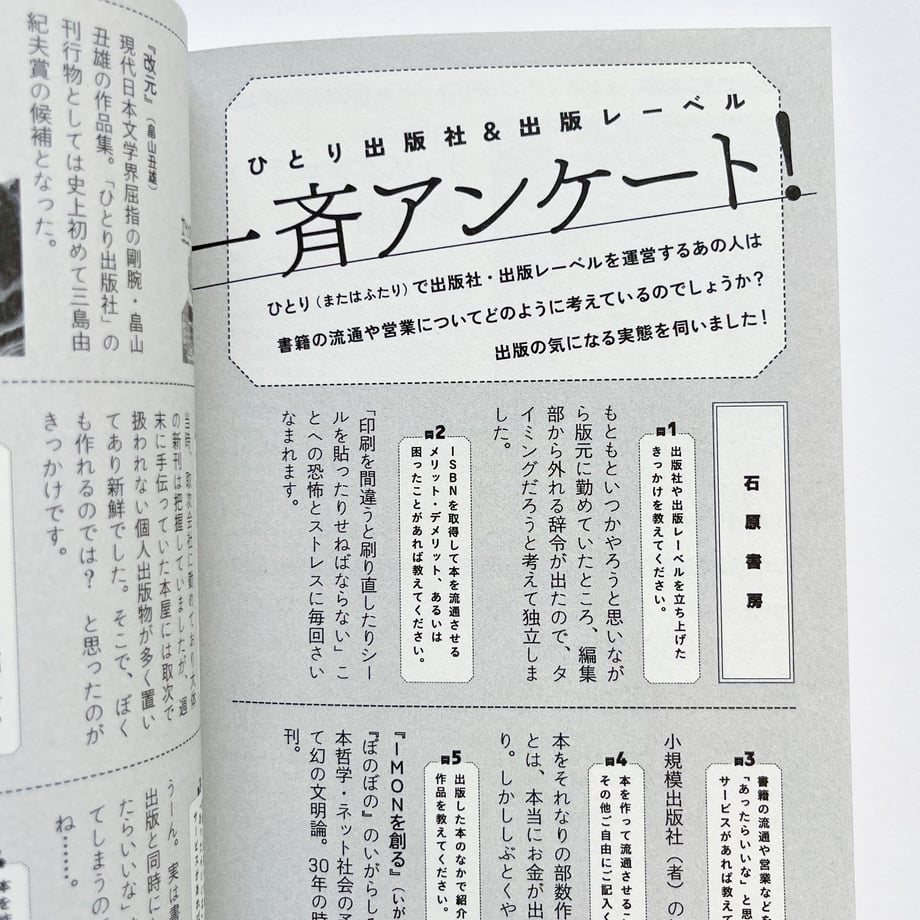 ひとり出版社&出版レーベル
一斉アンケート!
ひとり(またはふたり)で出版社・出版レーベルを運営するあの人は
書籍の流通や営業についてどのように考えているのでしょうか?
出版の気になる実態を伺いました!
石原書房
問1
出版社や出版レーベルを立ち上げた
きっかけを教えてください。
もともといつかやろうと思いなが
ら版元に勤めていたところ、編集
部から外れる辞令が出たので、タ
イミングだろうと考えて独立しま
した。
問2
ISBNを取得して本を流通させる
メリット・デメリット、あるいは
困ったことがあれば教えてください。
「印刷を間違うと刷り直したりシー
ルを貼ったりせねばならない」こ
とへの恐怖とストレスに毎回さい
なまれます。
問3
書籍の流通や営業など
「あったらいいな」と思
サービスがあれば教えて
小規模出版社(者)の
問4
本を作って流通させるこ
その他ご自由にご記入く
本をそれなりの部数作
とは、本当にお金が出
り。しかししぶとくや
問5
出版した本のなかで紹介
作品を教えてください。
『IMONを創る』(いが
『ぼのぼの』のいがらし
本哲学・ネット社会の予
て幻の文明論。30年の時
刊。
『改元』(畠山丑雄)
現代日本文学界屈指の剛腕・畠山
丑雄の作品集。「ひとり出版社」の
刊行物としては史上初めて三島由
紀夫賞の候補となった。
当時、取次会社に勤めており大体
の新刊は把握していましたが、週
末に手伝っていた本屋には取次で
扱われない個人出版物が多く置い
てあり新鮮でした。そこで、ぼく
も作れるのでは? と思ったのが
きっかけです。
うーん。実は書
出版と同時に
たらいいな」
てしまうの
ね……。